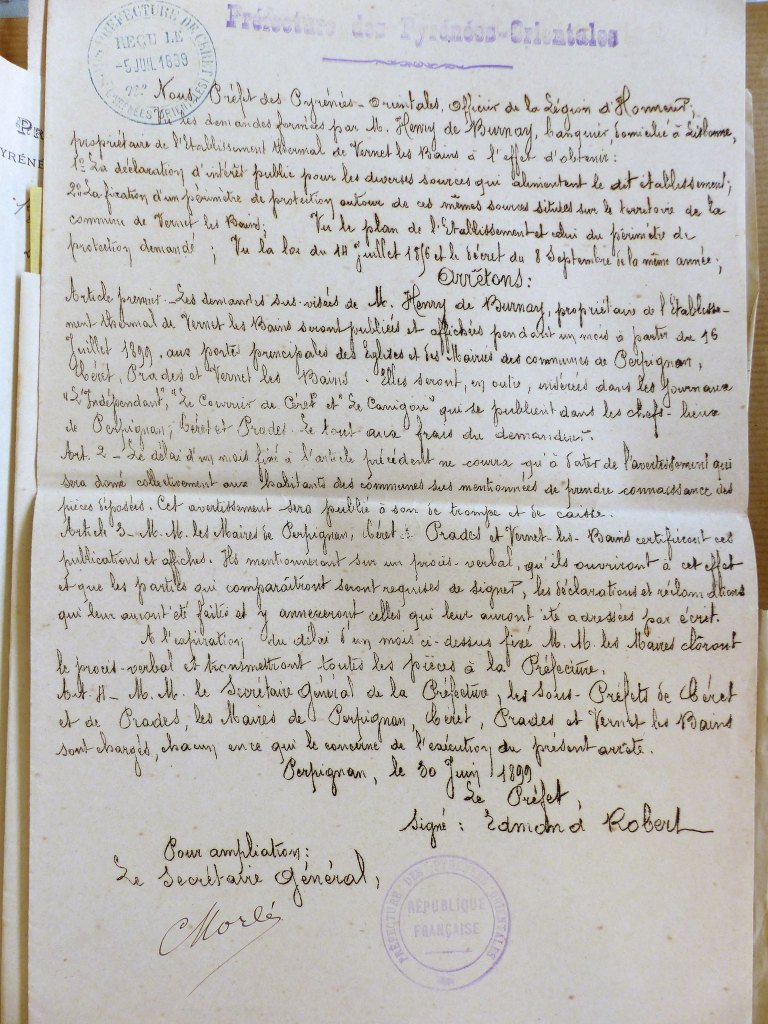 Préfecture des Pyrénées-Orientales
SOUS-PRÉFECTURE DE CÉRET
REÇU LE
-5 JUIL 1899
(PYRÉNÉES ORIENTALES)
Nous, Préfet des Pyrénées-Orientales, Officier de la Légion d'Honneur;
Vu les demandes formées par M. Henry de Burnay, banquier, domicilié à Lisbonne,
propriétaire de l'Etablissement thermal de Vernet les Bains à l'effet d'obtenir:
1º La déclaration d'intérêt public pour les diverses sources qui alimentent le dit établissement;
2º La fixation d'un périmètre de protection autour de ces mêmes sources situées sur le territoire de la
commune de Vernet les Bains; Vu le plan de l'Etablissement et celui du périmètre de
protection demandé; Vu la loi du 14 Juillet 1856 et le décret du 8 Septembre de la même année;
Arrêtons:
Article premier.- Les demandes sus-visées de M. Henry de Burnay, propriétaire de l'Etablisse-
ment thermal de Vernet les Bains seront publiées et affichées pendant un mois à partir du 16
Juillet 1899, aux portes principales des Eglises et des Mairies des communes de Perpignan,
Céret, Prades et Vernet les Bains. Elles seront, en outre, insérées dans les Journaux
"L'Indépendant", "Le Courrier de Céret" et "Le Canigou" qui se publient dans les chefs-lieux
de Perpignan, Céret et Prades. Le tout aux frais du demandeur.
Art. 2 - Le délai d'un mois fixé à l'article précédent ne courra qu'à dater de l'avertissement qui
sera donné collectivement aux habitants des communes sus mentionnées de prendre connaissance des
pièces déposées. Cet avertissement sera publié à son de trompe et de caisse.
Article 3 - M.M. les Maires de Perpignan, Céret, Prades et Vernet-les-Bains certifieront ces
publications et affiches. Ils mentionneront sur un procès-verbal, qu'ils ouvriront à cet effet
et que les parties qui comparaîtront seront requises de signer, les déclarations et réclamations
qui leur auront été faites et y annexeront celles qui leur auront été adressées par écrit.
A l'expiration du délai d'un mois ci-dessus fixé M.M. les Maires clôront
le procès-verbal et transmettront toutes les pièces à la Préfecture.
Art. 4 - M.M. le Secrétaire Général de la Préfecture, les Sous-Préfets de Céret
et de Prades, les Maires de Perpignan, Céret, Prades et Vernet les Bains
sont chargés, chacun en ce qui le concerne de l'exécution du présent arrêté.
Perpignan, le 30 Juin 1899
Le Préfet,
Signé: Edmond Robert
Pour ampliation:
Le Secrétaire Général,
CMorlé
PRÉFECTURE DES PYRÉNÉES ORIENTALES
RÉPUBLIQUE
FRANÇAISE